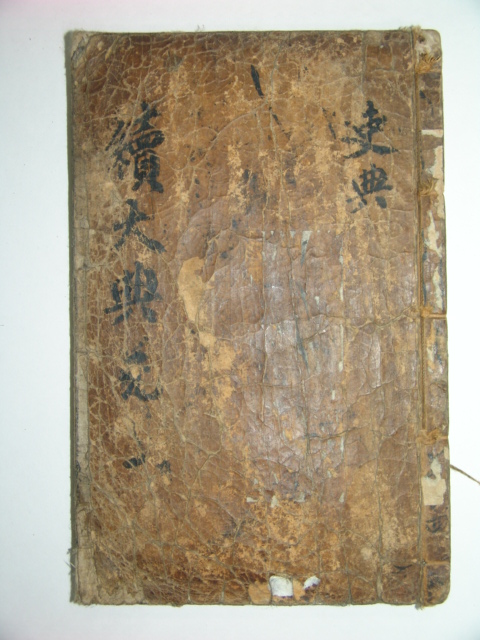 吏典
續大典 元 一